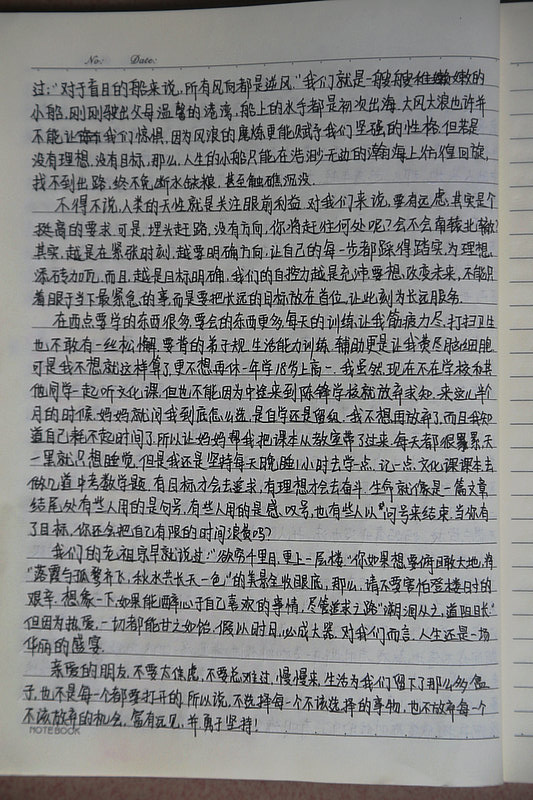 No:   Date:
过:"对于盲目的船来说,所有风向都是逆风."我们就是一艘艘稚嫩的
小船,刚刚驶出父母温馨的港湾,船上的水手都是初次出海.大风大浪也许并
不能让我们惊惧,因为风浪的磨炼更能赋予我们坚强的性格.但若是
没有理想,没有目标,那么,人生的小船只能在浩渺无边的瀚海上彷徨回旋,
找不到出路,终不免断水缺粮,甚至触礁沉没.
不得不说,人类的天性就是关注眼前利益.对我们来说,要有远虑,其实是个
挺高的要求.可是,埋头赶路,没有方向,你将赶往何处呢?会不会南辕北辙?
其实,越是在紧张时刻,越要明确方向,让自己的每一步都踩得踏实,为理想
添砖加瓦.而且,越是目标明确,我们的自控力越是充沛.要想改变未来,不能只
着眼于当下最紧急的事,而是要把长远的目标放在首位,让此刻为长远服务.
在西点要学的东西很多,要会的东西更多.每天的训练,让我筋疲力尽,打扫卫生
也不敢有一丝松懈.要背的弟子规,生活能力训练,辅助更是让我费尽脑细胞
可是我不想就这样算了,更不想再休一年学18岁上高一.我虽然现在不在学校和其
他同学一起听文化课.但也不能因为中途来到陈锋学校就放弃求知.来这儿半个
月的时候,妈妈就问我到底怎么选,是自学还是留级.我不想再放弃了,而且我知
道自己耗不起时间了,所以让妈妈帮我把课本从教室带了过来.每天都很累,天
一黑就只想睡觉,但是我还是坚持每天晚睡1小时去学一点,记一点文化课课本去
做几道中考数学题.有目标才会去追求,有理想才会去奋斗.生命就像是一篇文章
结尾处有些人用的是句号,有些人用的是感叹号,也有些人以"问号来结束.当你有
了目标,你还会把自己有限的时间浪费吗?
我们的老祖宗早就说过:"欲穷千里目,更上一层楼."你如果想要俯瞰大地,将
"落霞与孤鹜齐飞,秋水共长天一色"的美景全收眼底,那么,请不要害怕登楼时的
艰辛.想象一下,如果能醉心于自己喜欢的事情,尽管追求之路"溯洄从之,道阻且长."
但因为热爱,一切都能甘之如饴,假以时日,必成大器.对我们而言,人生还是一场
华丽的盛宴.
亲爱的朋友,不要太焦虑,不要太难过,慢慢来.生活为我们留下了那么多盒
子,也不是每一个都要打开的.所以说,不选择每一个不该选择的事物,也不放弃每一个
不该放弃的机会,富有远见,并勇于坚持!
NOTEBOOK